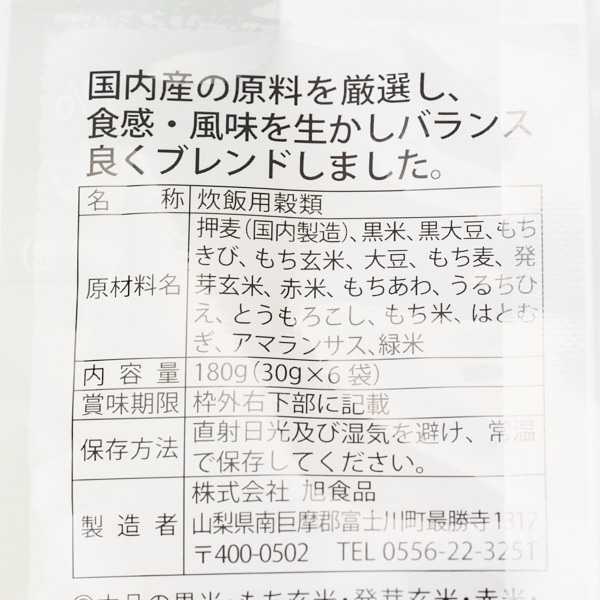 国内産の原料を厳選し、
食感・風味を生かしバランス
良くブレンドしました。
名称 炊飯用穀類
原材料名 押麦(国内製造)、黒米、黒大豆、もち
きび、もち玄米、大豆、もち麦、発
芽玄米、赤米、もちあわ、うるちひ
え、とうもろこし、もち米、はとむ
ぎ、アマランサス、緑米
内容量 180g(30g×6袋)
賞味期限 枠外右下部に記載
保存方法 直射日光及び湿気を避け、常温
で保存してください。
製造者 株式会社 旭食品
山梨県南巨摩郡富士川町最勝寺1317
〒400-0502 TEL 0556-22-3251